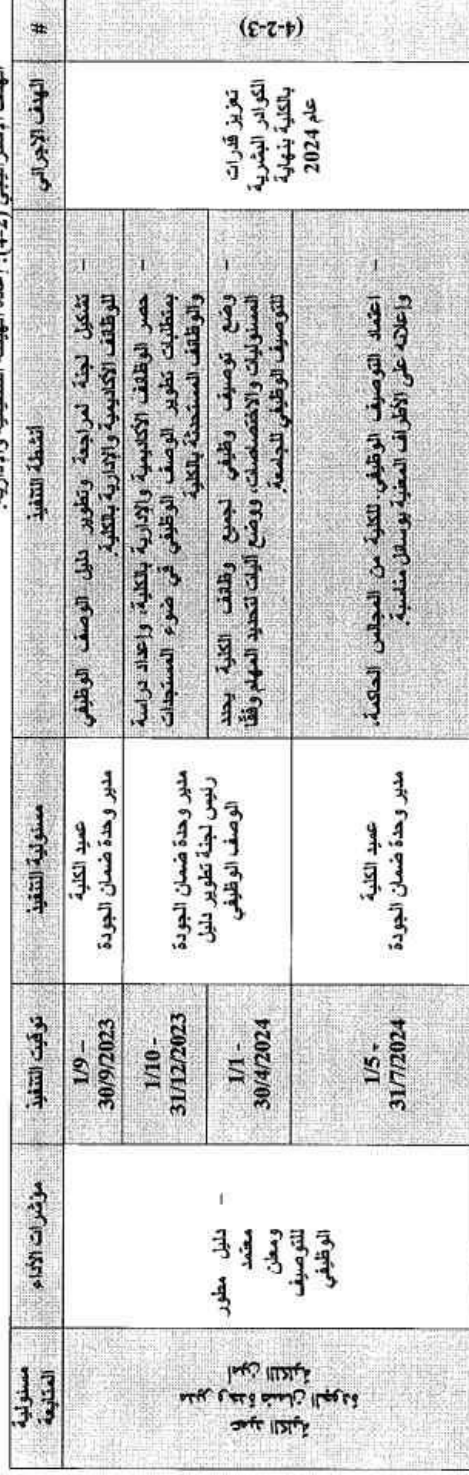 الهدف الإستراتيجي (4-2): إعادة الهيكلة التنظيمية والإدارية.
#
الهدف الإجرائي
أنشطة التنفيذ
مسئولية التنفيذ
توقيت التنفيذ
مؤشرات الأداء
مسئولية
المتابعة
(4-2-3)
تعزيز قدرات
الكوادر البشرية
بالكلية بنهاية
عام 2024
– تشكيل لجنة لمراجعة وتطوير دليل الوصف الوظيفي
للوظائف الأكاديمية والإدارية بالكلية.
عميد الكلية
مدير وحدة ضمان الجودة
1/9 –
30/9/2023
– حصر الوظائف الأكاديمية والإدارية بالكلية، وإعداد دراسة
بمتطلبات تطوير الوصف الوظيفي في ضوء المستجدات
والوظائف المستحدثة بالكلية
مدير وحدة ضمان الجودة
رئيس لجنة تطوير دليل
الوصف الوظيفي
1/10 -
31/12/2023
– وضع توصيف وظيفي لجميع وظائف الكلية يحدد
المسئوليات والاختصاصات، ووضع آليات لتحديد المهام وفقًا
للتوصيف الوظيفي للجامعة.
1/1 -
30/4/2024
– اعتماد التوصيف الوظيفي للكلية من المجالس الحاكمة،
وإعلانه على الأطراف المعنية بوسائل مناسبة.
عميد الكلية
مدير وحدة ضمان الجودة
1/5 -
31/7/2024
– دليل مطور
للتوصيف
الوظيفي
معتمد
ومعلن
عميد الكلية
مدير وحدة ضمان الجودة